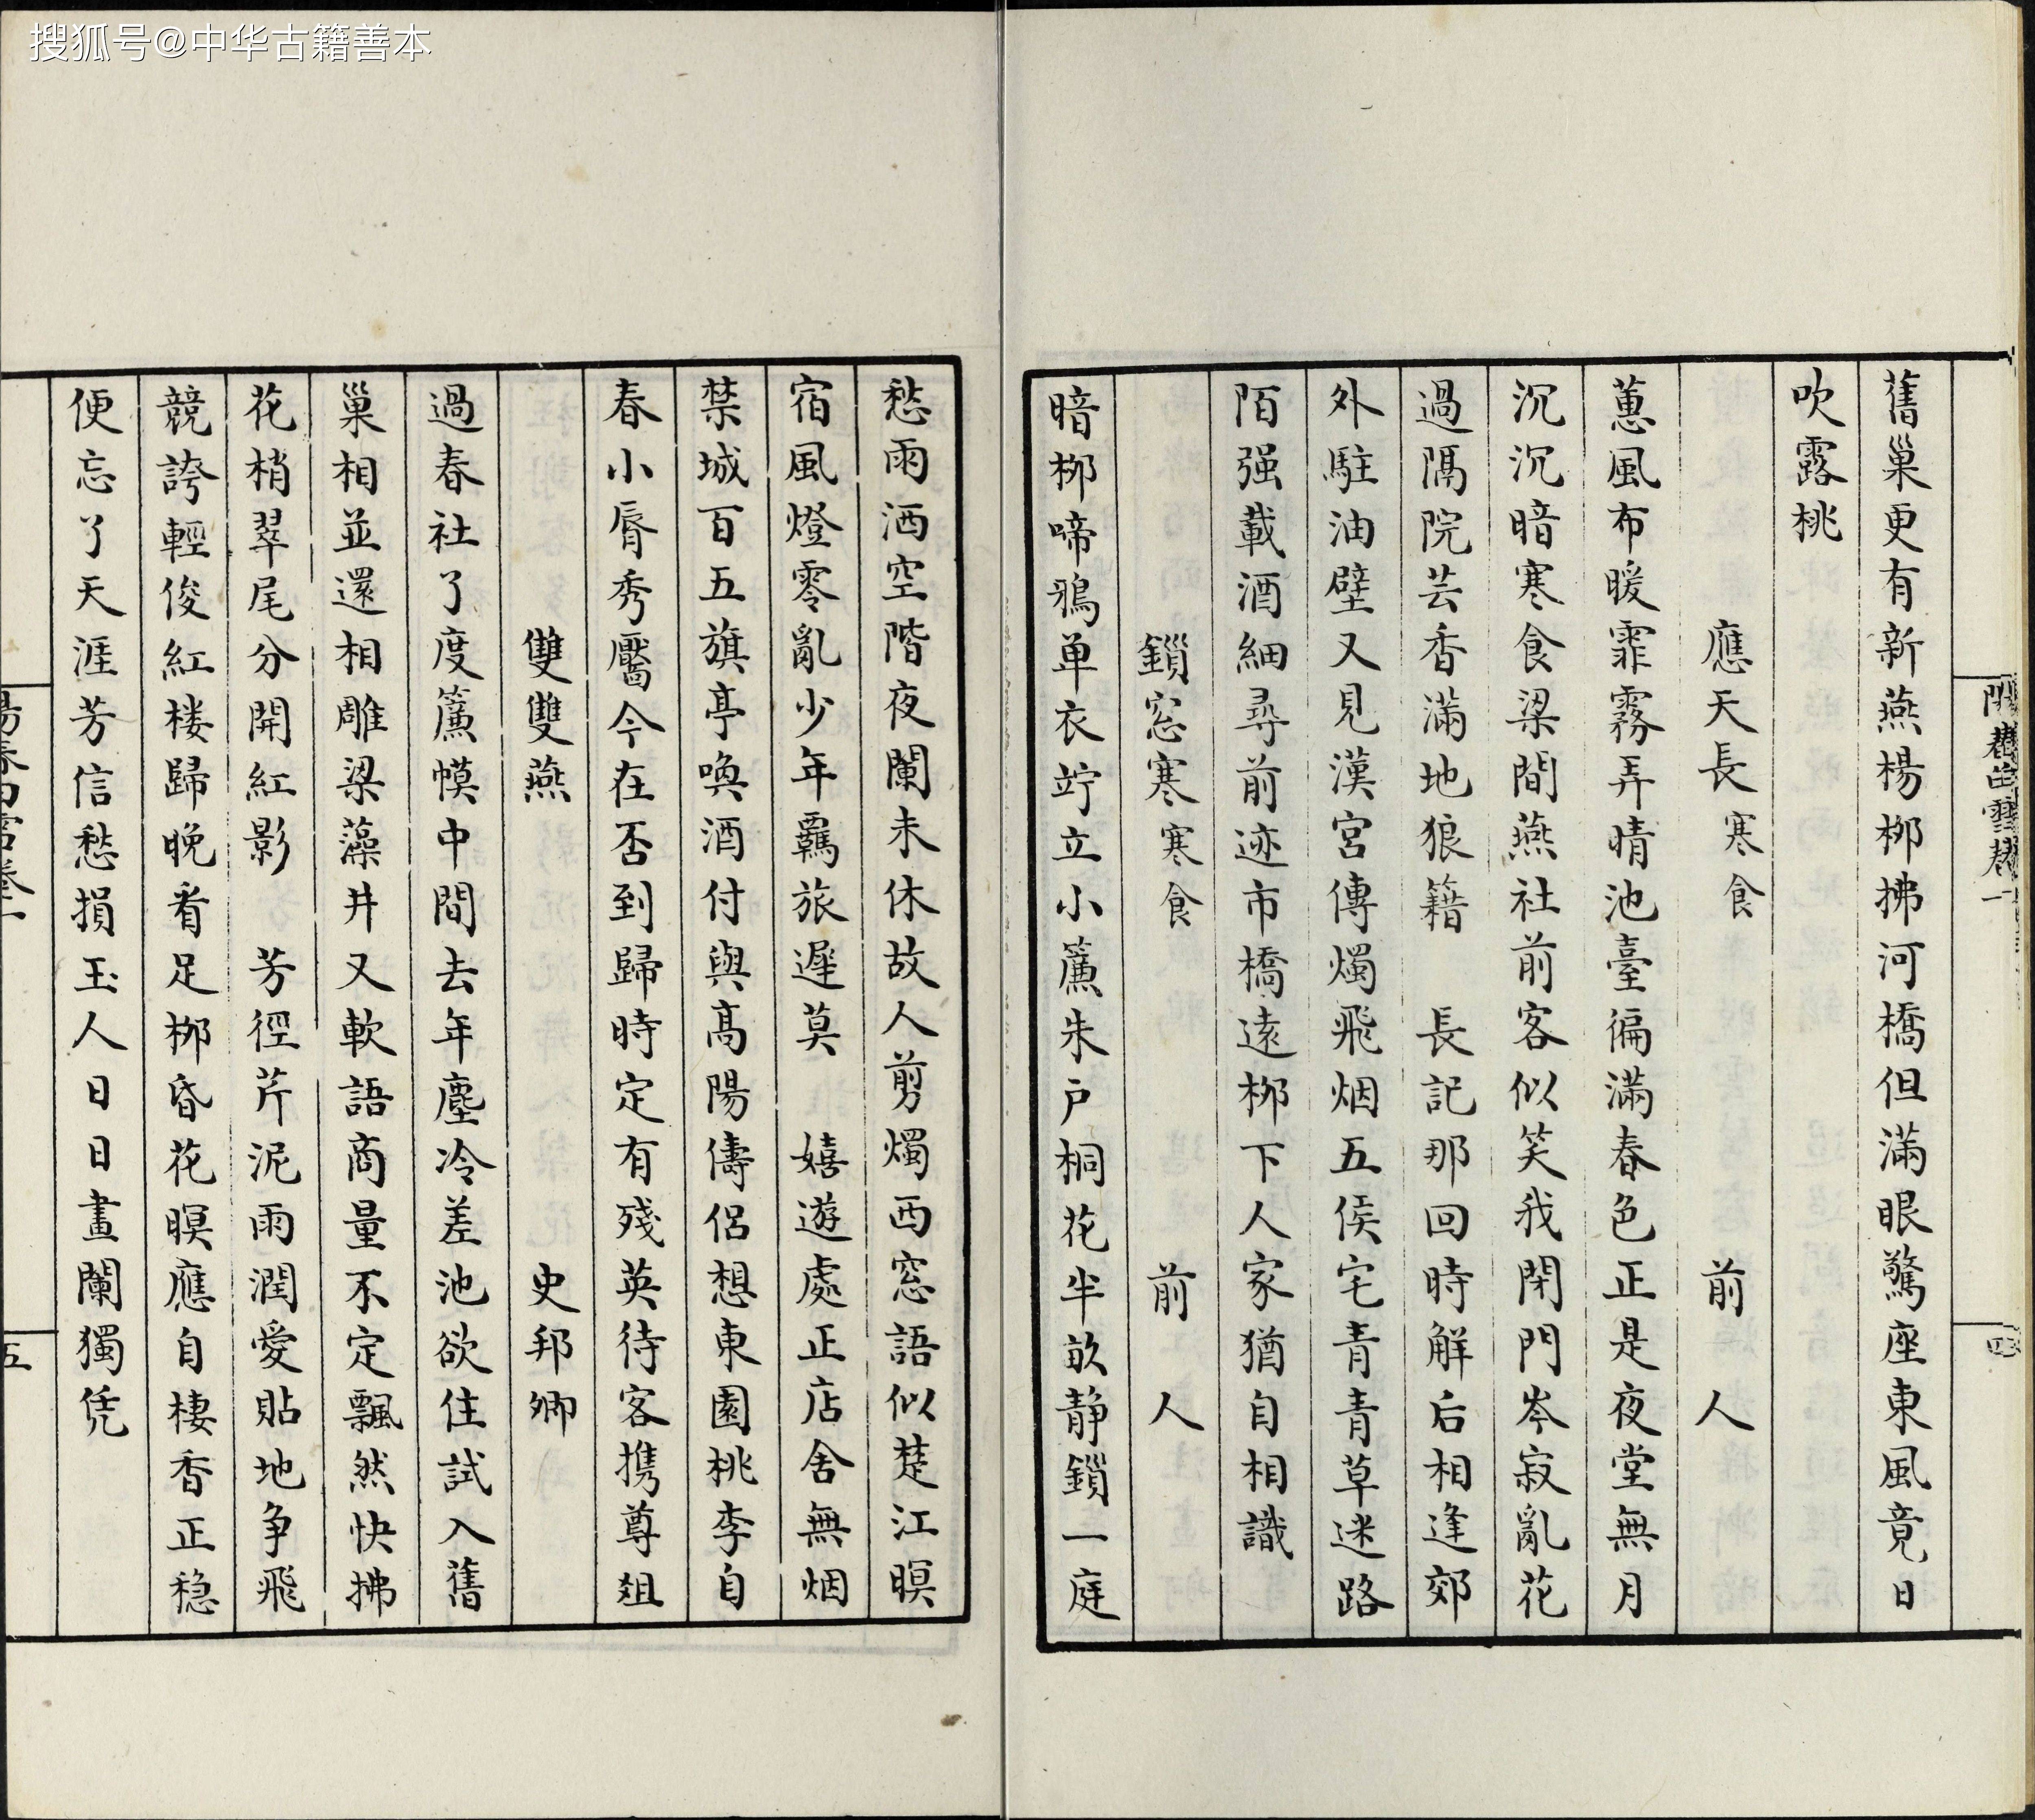 搜狐号@中华古籍善本
舊巢更有新燕楊栁拂河橋但滿眼驚座東風竟日
吹露桃
應天長 寒食 前人
蕙風布暖霏霧弄晴池臺徧滿春色正是夜堂無月
沉沉暗寒食梁間燕社前客似笑我閉門岑寂亂花
過隔院芸香滿地狼籍 長記那回時解后相逢郊
外駐油壁又見漢宮傳燭飛烟五侯宅青青草迷路
陌强載酒細尋前迹市橋遠栁下人家猶自相識
鎻窓寒 寒食 前人
暗栁啼鴉单衣竚立小簾朱户桐花半畝静鎻一庭
愁雨洒空階夜闌未休故人剪燭西窓語似楚江暝
宿風燈零亂少年羈旅遲莫 嬉遊處正店舍無烟
禁城百五旗亭喚酒付與髙陽儔侣想東園桃李自
春小脣秀靨今在否到歸時定有殘英待客携尊爼
雙雙燕 史邦卿
過春社了度簾幙中間去年塵冷差池欲住試入舊
巢相並還相雕梁藻井又軟語商量不定飄然快拂
花梢翠尾分開紅影 芳徑芹泥雨潤愛貼地争飛
競誇輕俊紅楼歸晚看足栁昏花暝應自棲香正穏
便忘了天涯芳信愁損玉人日日畫闌獨凭
五